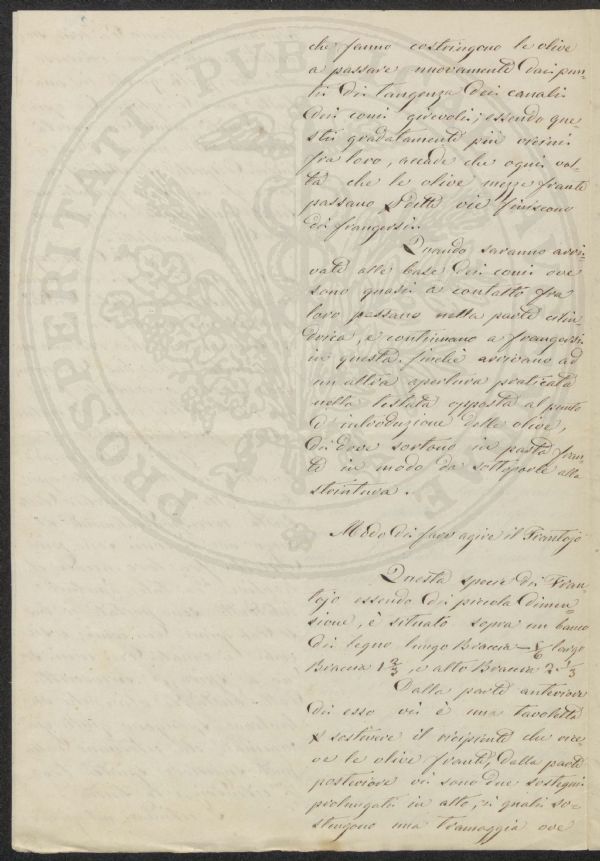 che fanno costringono le olive
a passare nuovamente dai pun=
ti di tangenza dei canali
dei coni girevoli; essendo que=
sti gradatamente più vicini
fra loro, accade che ogni vol=
ta che le olive mezze frante
passano p detta via finiscono
di frangersi.
Quando saranno arri=
vate alla base dei coni ove
sono quasi a contatto fra
loro passano nella parte cilin=
drica, e continuano a frangersi
in questa finchè arrivano ad
un'altra apertura praticata
nella testata opposta al punto
d'introduzione delle olive,
di dove sortono in pasta fran=
te in modo da sottoporle alla
strintura.
Modo di fare agire il Frantojo
Questa specie di Fran=
tojo essendo di piccola dimen=
sione, è situato sopra un banco
di legno lungo Braccia - 5/6 largo
Braccia 1 2/3, e alto Braccia 2 1/3
Dalla parte anteriore
di esso vi è una tavoletta
p sostenere il recipiente che rice=
ve le olive frante, dalla parte
posteriore vi sono due sostegni
prolungati in alto, i quali so=
stengono una tramoggia ove
PROSPERITATI PUB